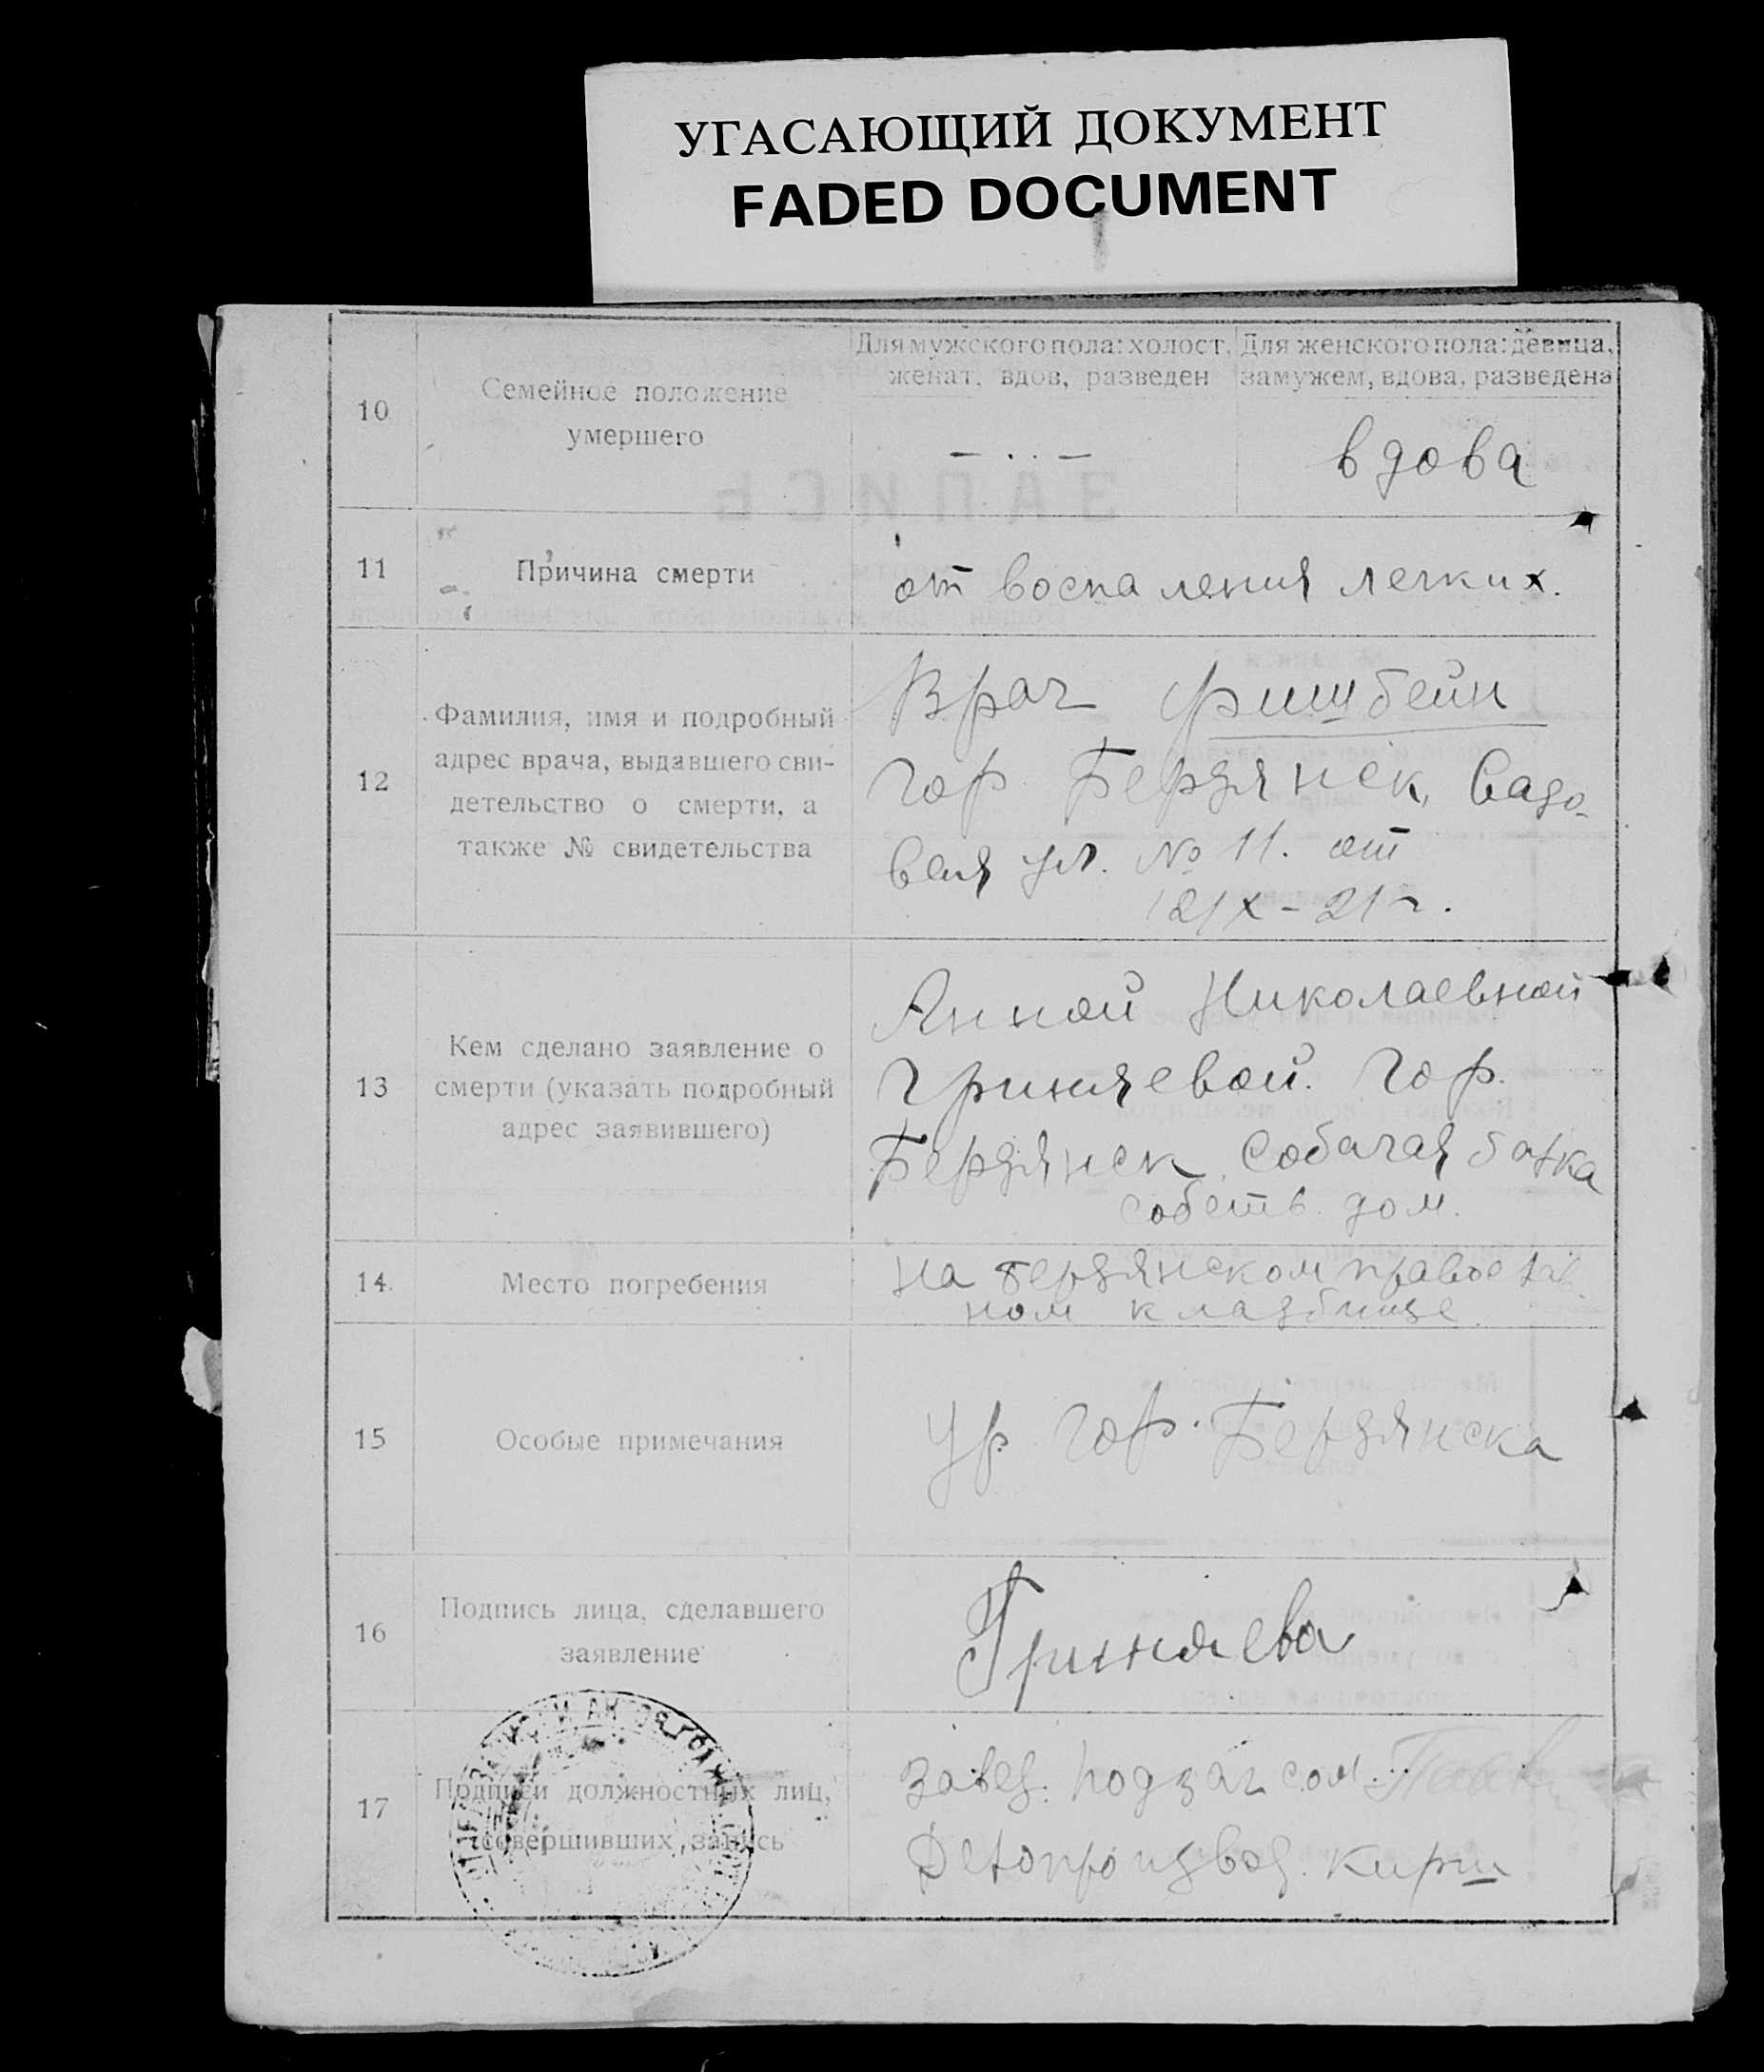 УГАСАЮЩИЙ ДОКУМЕНТ
FADED DOCUMENT
10
Семейное положение
умершего
Для мужского пола: холост,
женат, вдов, разведен
Для женского пола: девица,
замужем, вдова, разведена
вдова
11
Причина смерти
от воспаления легких.
12
Фамилия, имя и подробный
адрес врача, выдавшего сви-
детельство о смерти, а
также № свидетельства
Врач Фишбейн
гор. Бердянск, Садо-
вая ул. № 11. от
X-21 г.
13
Кем сделано заявление о
смерти (указать подробный
адрес заявившего)
Анной Николаевной
Гриняевой. Гор.
Бердянск, Собачая балка
собств. дом.
14
Место погребения
на бердянском православ
ном кладбище.
15
Особые примечания
Ур гор. Бердянска
16
Подпись лица, сделавшего
заявление
Гриняева
17
Подписи должностных лиц,
совершивших запись
завед. подзагсом
Делопроизвод. Кирш
ЗАПИСЬ